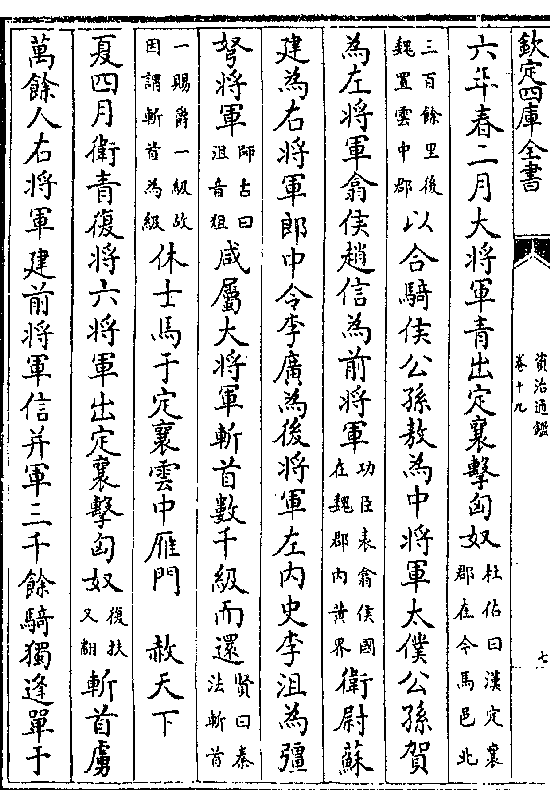 欽定四庫全書
資治通鑑
卷十九
七
六年春二月大將軍青出定襄擊匈奴杜佑曰漢定襄郡在今馬邑北
三百餘里後魏置雲中郡以合騎侯公孫敖為中將軍太僕公孫賀
為左將軍翕侯趙信為前將軍功臣表翕侯國在魏郡內黄界衛尉蘇
建為右將軍郎中令李廣為後將軍左內史李沮為彊
弩將軍師古曰沮音狙咸屬大將軍斬首數千級而還賢曰秦法斬首
一賜爵一級故因謂斬首為級休士馬于定襄雲中雁門 赦天下
夏四月衛青復將六將軍出定襄擊匈奴復扶又翻斬首虜
萬餘人右將軍建前將軍信并軍三千餘騎獨逢單于